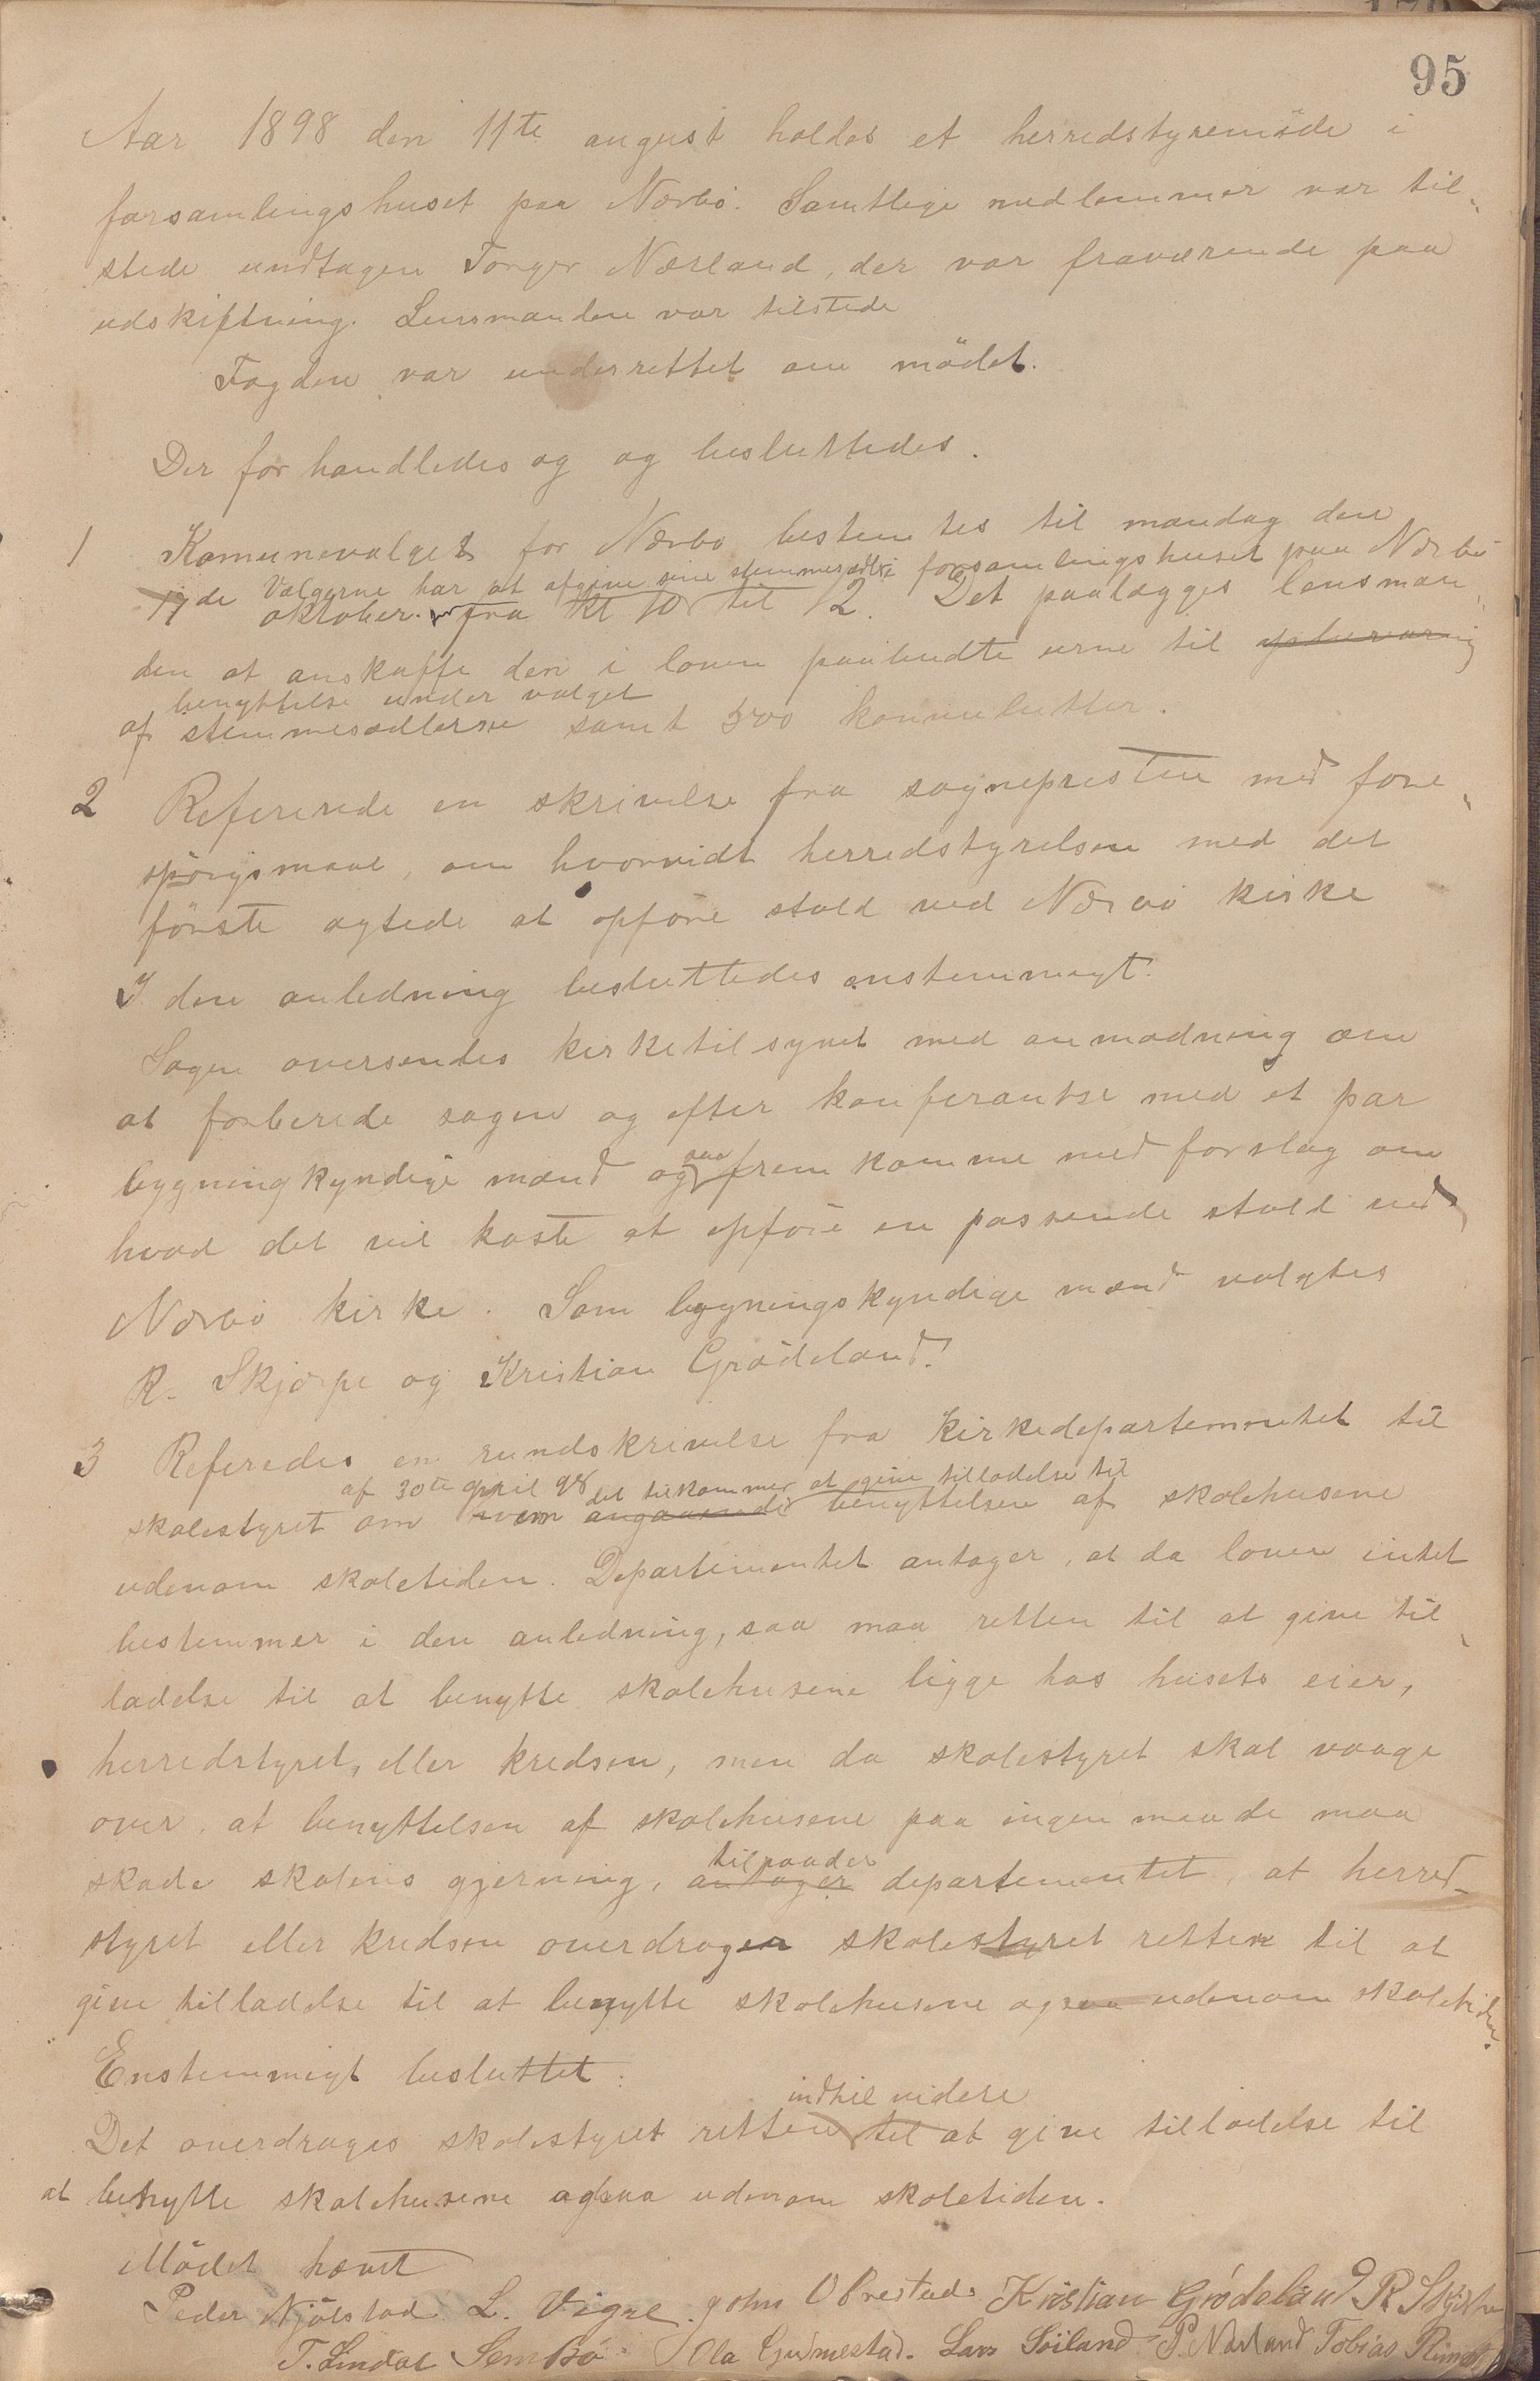 95
Aar 1898 den 11te august holdes et herredstyremöde i
forsamlingshuset paa Nærbö. Samtlige medlemmer var til-
stede undtagen Torger Nærland, der var fraværende paa
udskiftning. Lensmanden var tilstede
Fogden var underrettet om mödet.
Der forhandledes og og besluttedes.
1 Komunevalget for Nærbö bestemtes til mandag den
17de oktober. fra kl 10 til 12. Det paalægges lensman-
Valgerne har at afgive sine stemmesedler i forsamlingshuset paa Nærbö
den at anskaffe den i loven paabudte urne til opbevaring
benyttelse under valget
af stemmesedlerne samt 500 konvolutter.
2 Refererede en skrivelse fra sognepresten med fore-
spörgsmaal, om hvorvidt herredstyrelsen med det
förste agtede at opföre stald ved Nærbö kirke
I den anledning besluttedes enstemmigt:
Sagen oversendes kirketilsynet med anmodning om
at forberede sagen og efter konferantse med et par
bygningkyndige mænd og saa fremkomme med forslag om
hvad det vil koste at opföre en passende stald ved
Nærbö kirke. Som bygningskyndige mænd valgtes
R. Skjærpe og Kristian Grödeland.
3 Referedes en rundskrivelse fra Kirkedepartementet til
af 30te april 98 det tilkommer at give tilladelse til
skolestyret om hvem angaaende benyttelsen af skolehusene
udenom skoletiden. Departementet antager, at da loven intet
bestemmer i den anledning, saa maa retten til at give til-
ladelse til at benytte skolehusene ligge hos husets eier,
herredstyret, eller kredsen, men da skolestyret skal vaage
over, at benyttelsen af skolehusene paa ingen maade maa
tilraader
skade skolens gjerning, antager departementet, at herred-
styret eller kredsen overdrager skolestyret retten til at
give tilladelse til at benytte skolehusene ogsaa udenom skoletiden.
Enstemmigt besluttet:
indtil videre
Det overdrages skolestyret retten til at give tilladelse til
at benytte skolehusene ogsaa udenom skoletiden.
Mödet hævet
Peder Njölstad. L. Vigre. John Obrestad. Kristian Grödeland R Skjærpe
T. Lindal Sem Bö Ola Gudmestad. Lars Söiland P. Nærland Tobias